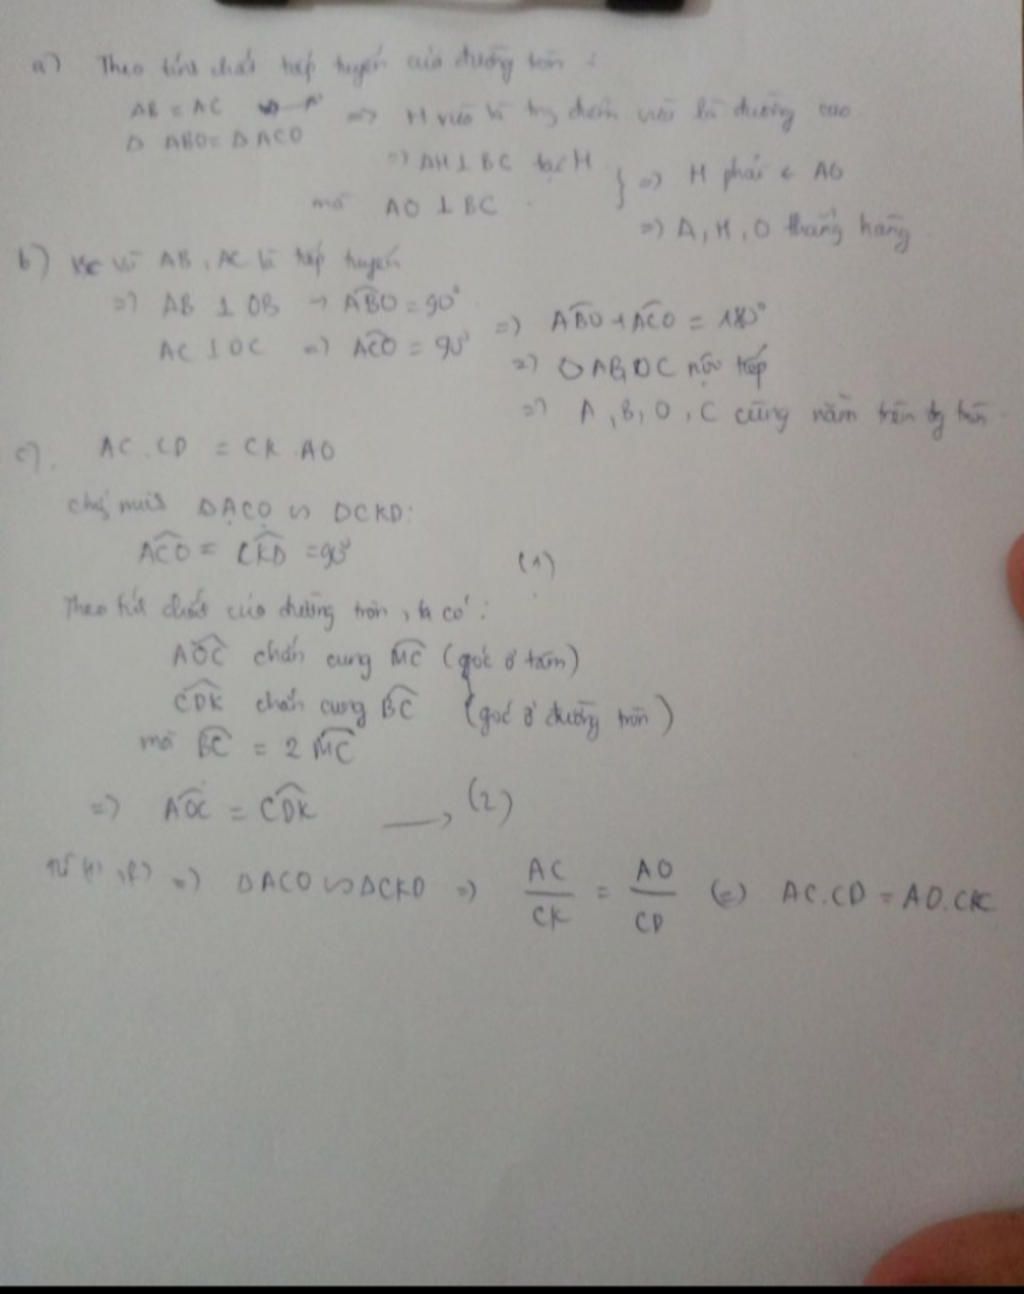 a) Theo tính chất tiếp tuyến của đường tròn :
AB = AC
Δ ABO = Δ ACO => H vừa là trg điểm vừa là đường cao
=> AH ⊥ BC tại H
mà AO ⊥ BC } => H phải ∈ AO
=> A, H, O thẳng hàng
b) vì AB, AC là tiếp tuyến
=> AB ⊥ OB → ABO = 90°
AC ⊥ OC => ACO = 90° => ABO + ACO = 180°
=> ABOC nội tiếp
=> A, B, O, C cùng nằm trên đg tròn
c). AC . CD = CK . AO
ΔACO ∽ ΔCKD:
ACO = CKD = 90° (1)
Theo t/c chất của đường tròn, ta có :
AOC chắn cung MC (góc ở tâm)
CDK chắn cung BC (góc ở đường tròn)
mà BC = 2 MC
=> AOC = CDK → (2)
Từ (1), (2) => ΔACO ∽ ΔCKD => AC/CK = AO/CD (=) AC.CD = AO.CK